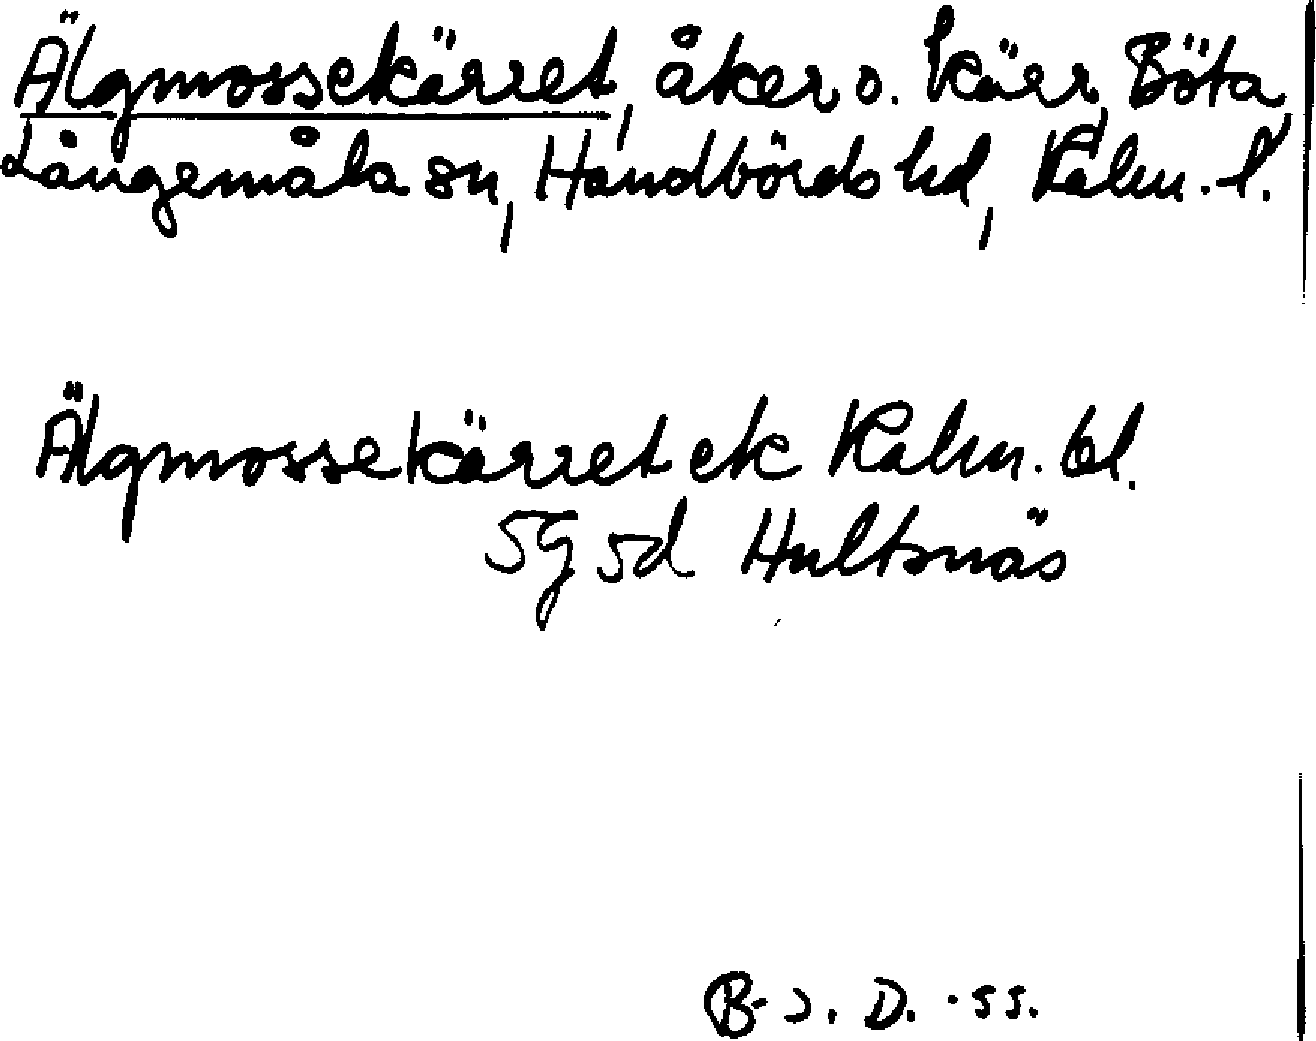 Älgmossekärret, åker o. kärr, Böta,
Långemåla sn, Handbörds hd, Kalm. l.
Älgmossekärret ek Kalm. bl.
5g 5d Hultsnäs
B-J. D. -55.